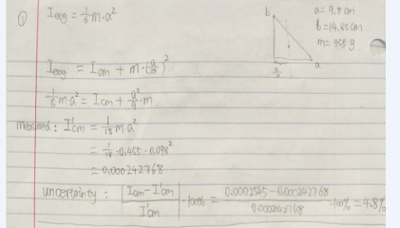 ① I edg = 1/6 m·a²
b
a = 9.8 cm
b = 14.65 cm
m = 455 g
a
I edg = I cm + m·(a/3)²
1/6 m a² = I cm + a²/9 · m
I'cm = 1/18 m a²
= 1/18 · 0.455 · 0.098²
= 0.000242768
uncertainty : | I cm - I'cm / I'cm | · 100% = 0.0002545 - 0.000242768 / 0.000242768 · 100% = 4.8%